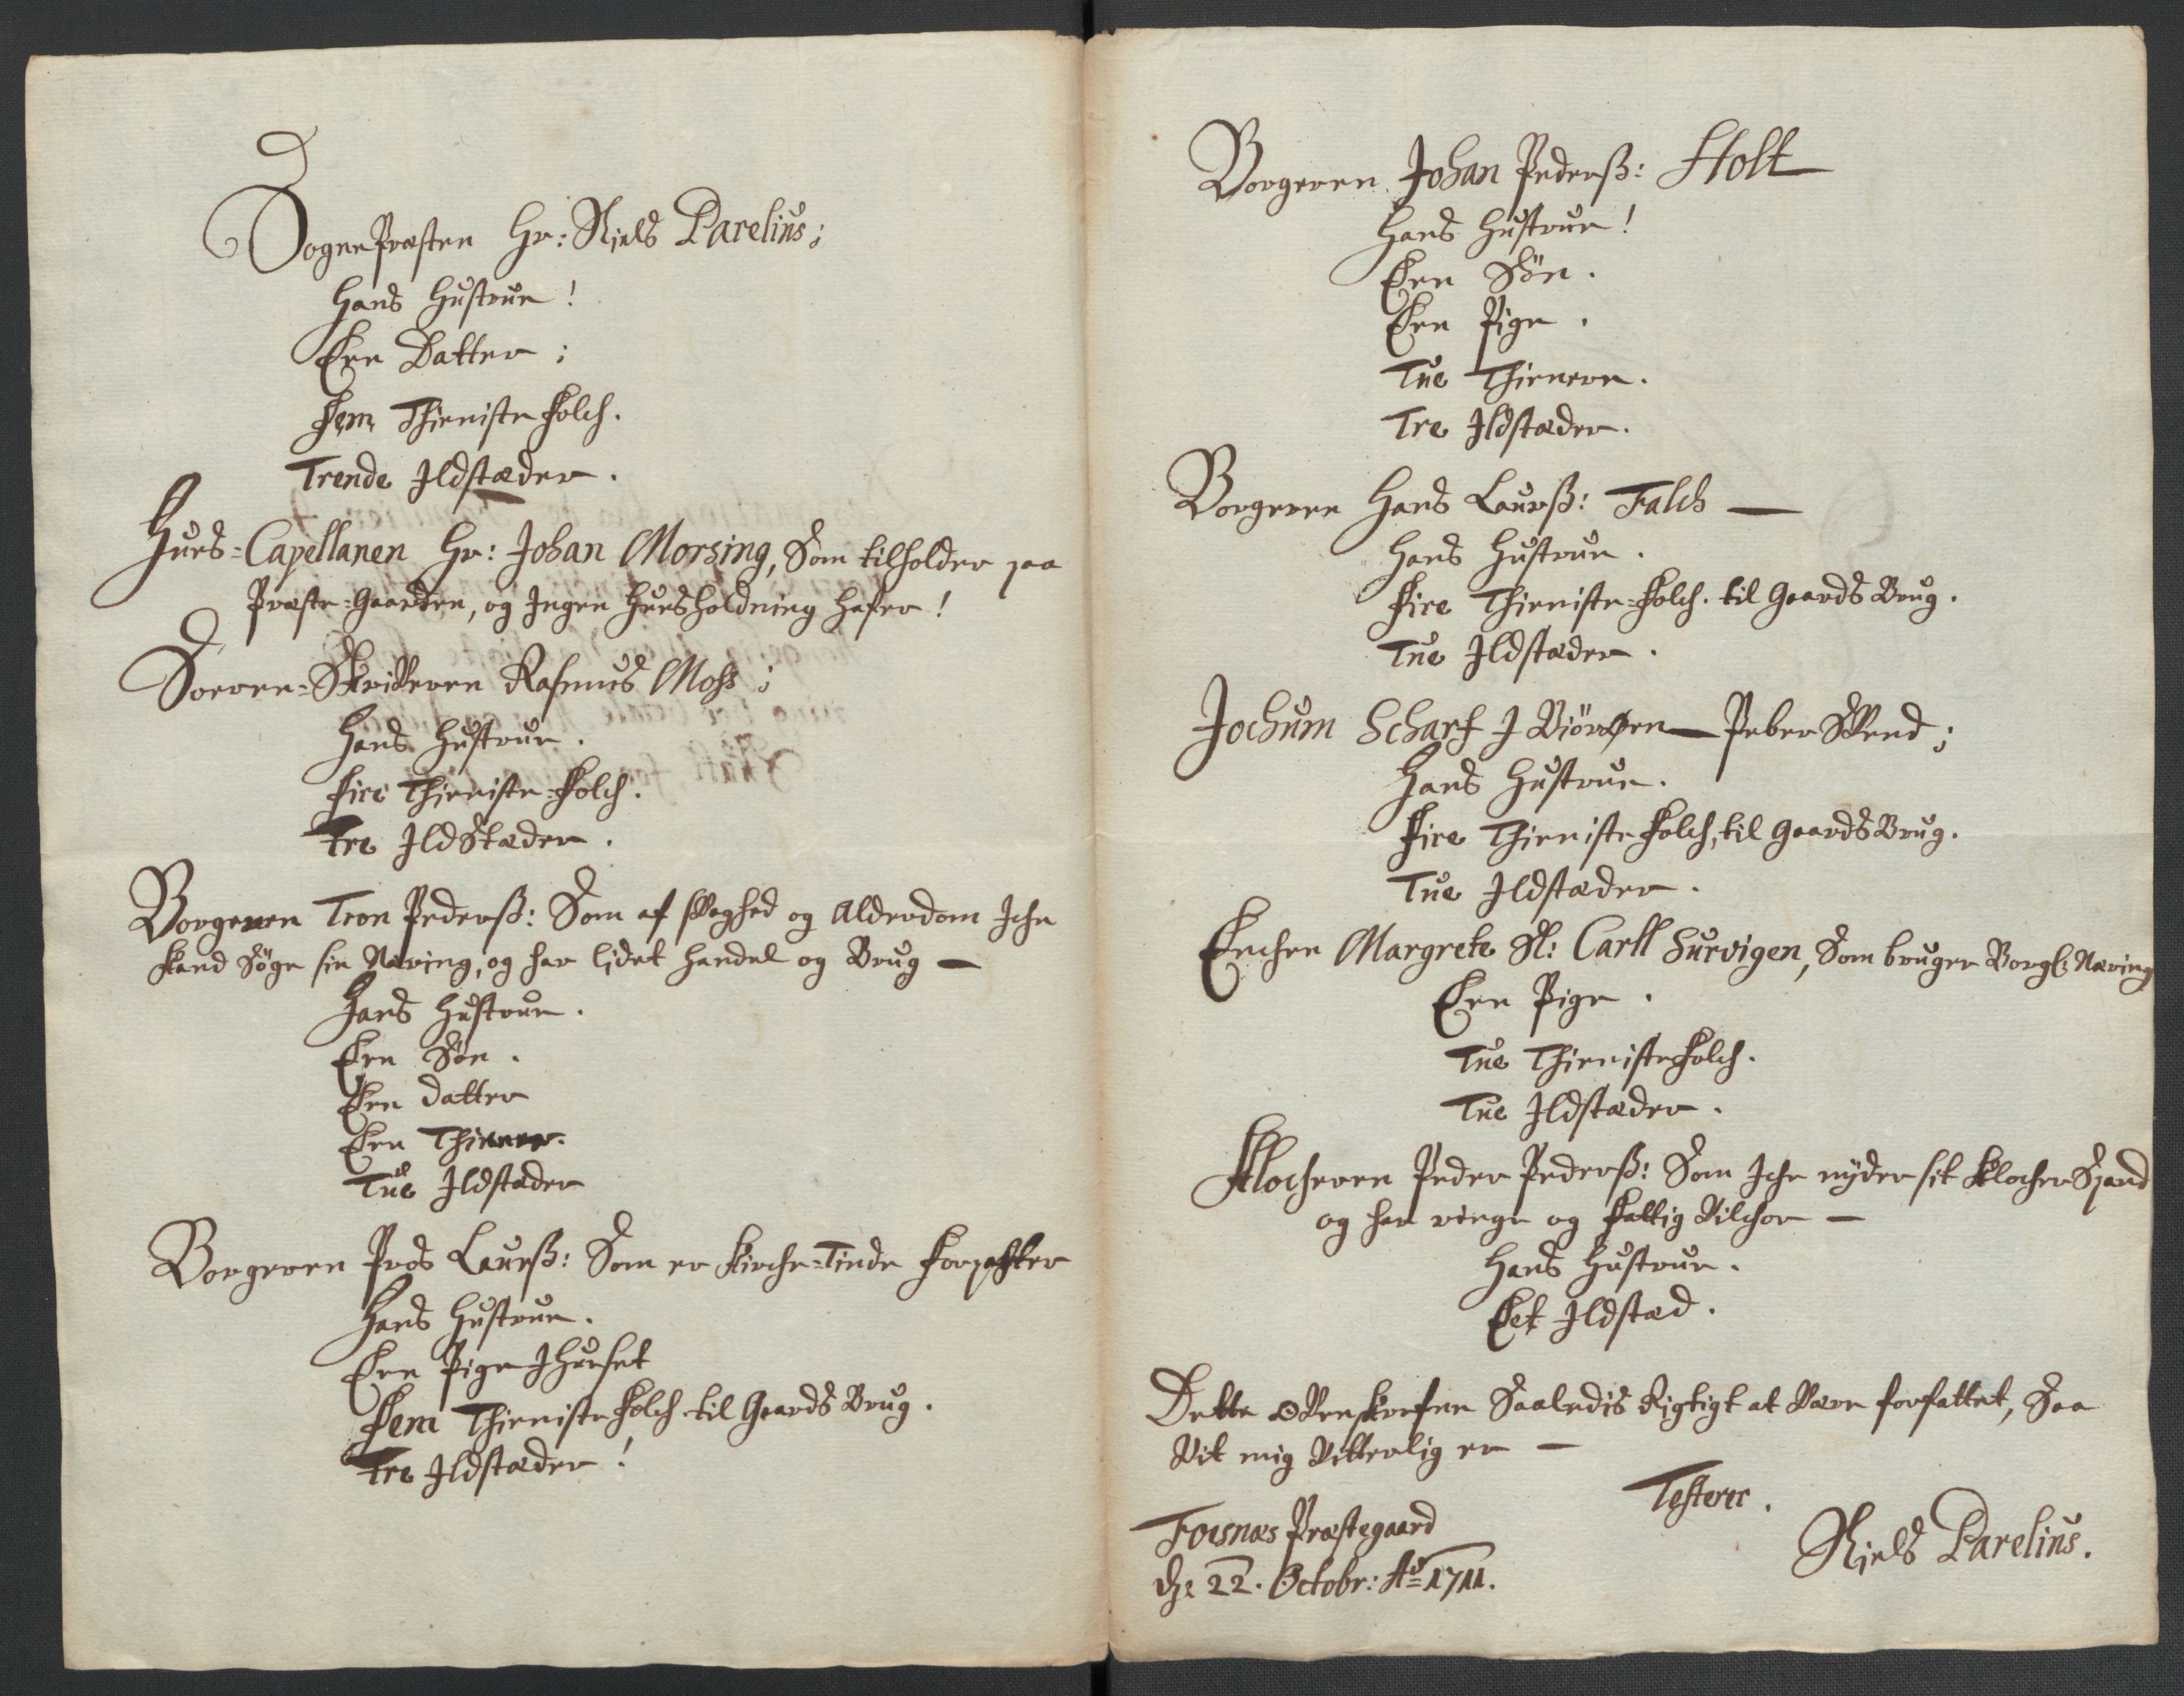 SognePræsten Hr: Niels Parelius;
Hans Hustrue!
Een Datter;
Fem Thieniste folch.
Trende Ildstæder.
Huus-Capellanen Hr: Johan Morsing, Som tilholder paa
Præste-Gaarden, og Ingen Huusholdning hafer!
Soeren-Skriveren Rasmus Moss;
Hans Hustrue.
Fire Thieniste-Folch.
Tre IldStæder.
Borgeren Tron Pederß: Som af svaghed og Alderdom Iche
kand Søge sin Næring, og har lidet handel og Brug —
Hans Hustrue.
Een Søn.
Een datter
Een Thiener.
Tue Ildstæder
Borgeren Laurß: Som er Kirche-Tinde Forpachter
Hans Hustrue.
Een Pige I Huuset
Fem Thieniste folch til Gaards Brug.
Tre Ildstæder!
Borgeren Johan Pederß: Holt
Hans Hustrue!
Een Søn.
Een Pige.
Tue Thienere.
Tre Ildstæder.
Borgeren Hans Laurß: Falch —
Hans Hustrue.
Fire Thieniste-folch. til Gaards Brug.
Tue Ildstæder.
Jochum Scharf I Biörøen — Peber Svend;
Hans Hustrue.
Fire Thieniste folch, til Gaards Brug.
Tue Ildstæder.
Enchen Margrete Sl: Carll Survigen, Som bruger Borgl: Næring
Een Pige.
Tue Thieniste folch.
Tue Ildstæder.
Klocheren Peder Pederß: Som Iche nyder sit Klocher
og har ringe og fattig Vilchor —
Hans Hustrue.
Eet Ildstæd.
Dette Ovenskrefne Saaledis Rigtigt at Være forfattet, Saa
Vit mig Vitterlig er —
Testerer.
Foesnæs Præstegaard
dh: 22. Octobr: Ao 1711.
Niels Parelius.